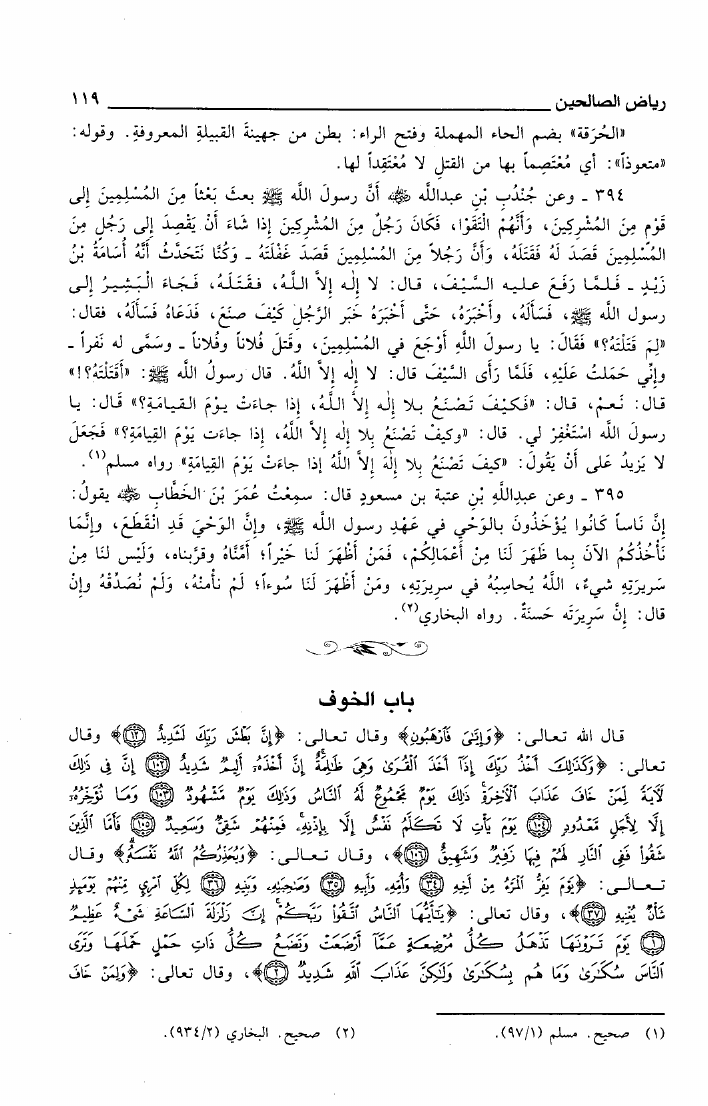 رياض الصالحين ١١٩
«الحُرَقة» بضم الحاء المهملة وفتح الراء: بطن من جهينةَ القبيلةِ المعروفةِ. وقوله:
«متعوذاً»: أي مُعْتَصِماً بها من القتلِ لا مُعْتَقِداً لها.
٣٩٤ ـ وعن جُنْدُبِ بْنِ عبدالله رضي الله عنه أَنَّ رسولَ الله ﷺ بعثَ بَعْثاً مِنَ المُسْلِمِينَ إلى
قَوْمٍ مِنَ المُشْرِكِينَ، وَأَنَّهُمُ الْتَقَوْا، فَكَانَ رَجُلٌ مِنَ المُشْرِكِينَ إذا شَاءَ أَنْ يَقْصِدَ إلى رَجُلٍ مِنَ
المُسْلِمِينَ قَصَدَ لَهُ فَقَتَلَهُ، وَأَنَّ رَجُلاً مِنَ المُسْلِمِينَ قَصَدَ غَفْلَتَهُ ـ وَكُنَّا نَتَحَدَّثُ أَنَّهُ أُسَامَةُ بْنُ
زَيْدٍ ـ فَلَمَّا رَفَعَ عليه السَّيْفَ، قال: لا إِله إِلاَّ اللَّهُ، فقَتَلَهُ، فَجَاءَ الْبَشِيرُ إلى
رسول الله ﷺ، فَسَأَلَهُ، وأَخْبَرَهُ، حَتَّى أَخْبَرَهُ خَبَرَ الرَّجُلِ كَيْفَ صنَعَ، فَدَعَاهُ فَسَأَلَهُ، فقال:
«لِمَ قَتَلْتَهُ؟» فَقَالَ: يا رسولَ اللَّهِ أَوْجَعَ في المُسْلِمِينَ، وقَتلَ فُلاناً وفُلاناً ـ وسَمَّى له نَفراً ـ
وإِنِّي حَمَلتُ عَلَيْهِ، فَلَمَّا رَأَى السَّيْفَ قال: لا إِله إِلاَّ اللَّهُ. قال رسولُ الله ﷺ: «أَقَتَلْتَهُ؟!»
قال: نَعمْ، قال: «فَكيْفَ تَصْنَعُ بلا إِله إِلاَّ اللَّهُ، إذا جاءَتْ يوْمَ القيامَةِ؟» قَال: يا
رسولَ الله اسْتَغْفِرْ لي. قال: «وكيفَ تَصْنَعُ بِلا إِله إِلاَّ اللَّهُ، إذا جاءَت يَوْمَ القِيامَةِ؟» فَجَعَلَ
لا يَزيدُ عَلى أَنْ يَقُولَ: «كيفَ تَصْنَعُ بِلا إِلَهَ إِلاَّ اللَّهُ إذا جاءَتْ يَوْمَ القِيامَةِ» رواه مسلم(١).
٣٩٥ ـ وعن عبدِاللهِ بْنِ عتبة بن مسعودٍ قال: سمِعْتُ عُمَرَ بْنَ الخَطَّابِ رضي الله عنه يقولُ:
إِنَّ نَاساً كَانُوا يُؤْخَذُونَ بالوَحْي في عَهْدِ رسول الله ﷺ، وإِنَّ الوَحْيَ قَدِ انْقَطَعَ، وإِنَّمَا
نَأْخُذُكُمُ الآنَ بِما ظَهَرَ لَنَا مِنْ أَعْمَالِكُمْ، فَمَنْ أَظْهَرَ لَنا خَيْراً؛ أَمَّنَّاهُ وقرَّبناه، وَلَيْس لنَا مِنْ
سَريرَتِهِ شيءٌ، اللَّهُ يُحاسِبُهُ في سرِيرَتِهِ، ومَنْ أَظْهَرَ لَنَا سُوءاً؛ لَمْ نأْمنْهُ، وَلَمْ نُصَدِّقْهُ وإِنْ
قال: إِنَّ سَرِيرَتَه حَسنَةٌ. رواه البخاري(٢).
باب الخوف
قال الله تعالى: ﴿وَإِيَّٰيَ فَٱرْهَبُونِ﴾ وقال تعالى: ﴿إِنَّ بَطْشَ رَبِّكَ لَشَدِيدٌ ١٢﴾ وقال
تعالى: ﴿وَكَذَٰلِكَ أَخْذُ رَبِّكَ إِذَآ أَخَذَ ٱلْقُرَىٰ وَهِيَ ظَٰلِمَةٌ إِنَّ أَخْذَهُۥٓ أَلِيمٌ شَدِيدٌ ١٠٢ إِنَّ فِى ذَٰلِكَ
لَءَايَةً لِّمَنْ خَافَ عَذَابَ ٱلْءَاخِرَةِ ذَٰلِكَ يَوْمٌ مَّجْمُوعٌ لَّهُ ٱلنَّاسُ وَذَٰلِكَ يَوْمٌ مَّشْهُودٌ ١٠٣ وَمَا نُؤَخِّرُهُۥٓ
إِلَّا لِأَجَلٍ مَّعْدُودٍ ١٠٤ يَوْمَ يَأْتِ لَا تَكَلَّمُ نَفْسٌ إِلَّا بِإِذْنِهِۦ فَمِنْهُمْ شَقِىٌّ وَسَعِيدٌ ١٠٥ فَأَمَّا ٱلَّذِينَ
شَقُوا۟ فَفِى ٱلنَّارِ لَهُمْ فِيهَا زَفِيرٌ وَشَهِيقٌ ١٠٦﴾، وقال تعالى: ﴿وَيُحَذِّرُكُمُ ٱللَّهُ نَفْسَهُۥ﴾ وقال
تعالى: ﴿يَوْمَ يَفِرُّ ٱلْمَرْءُ مِنْ أَخِيهِ ٣٤ وَأُمِّهِۦ وَأَبِيهِ ٣٥ وَصَٰحِبَتِهِۦ وَبَنِيهِ ٣٦ لِكُلِّ ٱمْرِئٍ مِّنْهُمْ يَوْمَئِذٍ
شَأْنٌ يُغْنِيهِ ٣٧﴾، وقال تعالى: ﴿يَٰٓأَيُّهَا ٱلنَّاسُ ٱتَّقُوا۟ رَبَّكُمْ إِنَّ زَلْزَلَةَ ٱلسَّاعَةِ شَىْءٌ عَظِيمٌ
١ يَوْمَ تَرَوْنَهَا تَذْهَلُ كُلُّ مُرْضِعَةٍ عَمَّآ أَرْضَعَتْ وَتَضَعُ كُلُّ ذَاتِ حَمْلٍ حَمْلَهَا وَتَرَى
ٱلنَّاسَ سُكَٰرَىٰ وَمَا هُم بِسُكَٰرَىٰ وَلَٰكِنَّ عَذَابَ ٱللَّهِ شَدِيدٌ ٢﴾، وقال تعالى: ﴿وَلِمَنْ خَافَ
(١) صحيح. مسلم (٩٧/١). (٢) صحيح. البخاري (٩٣٤/٢).